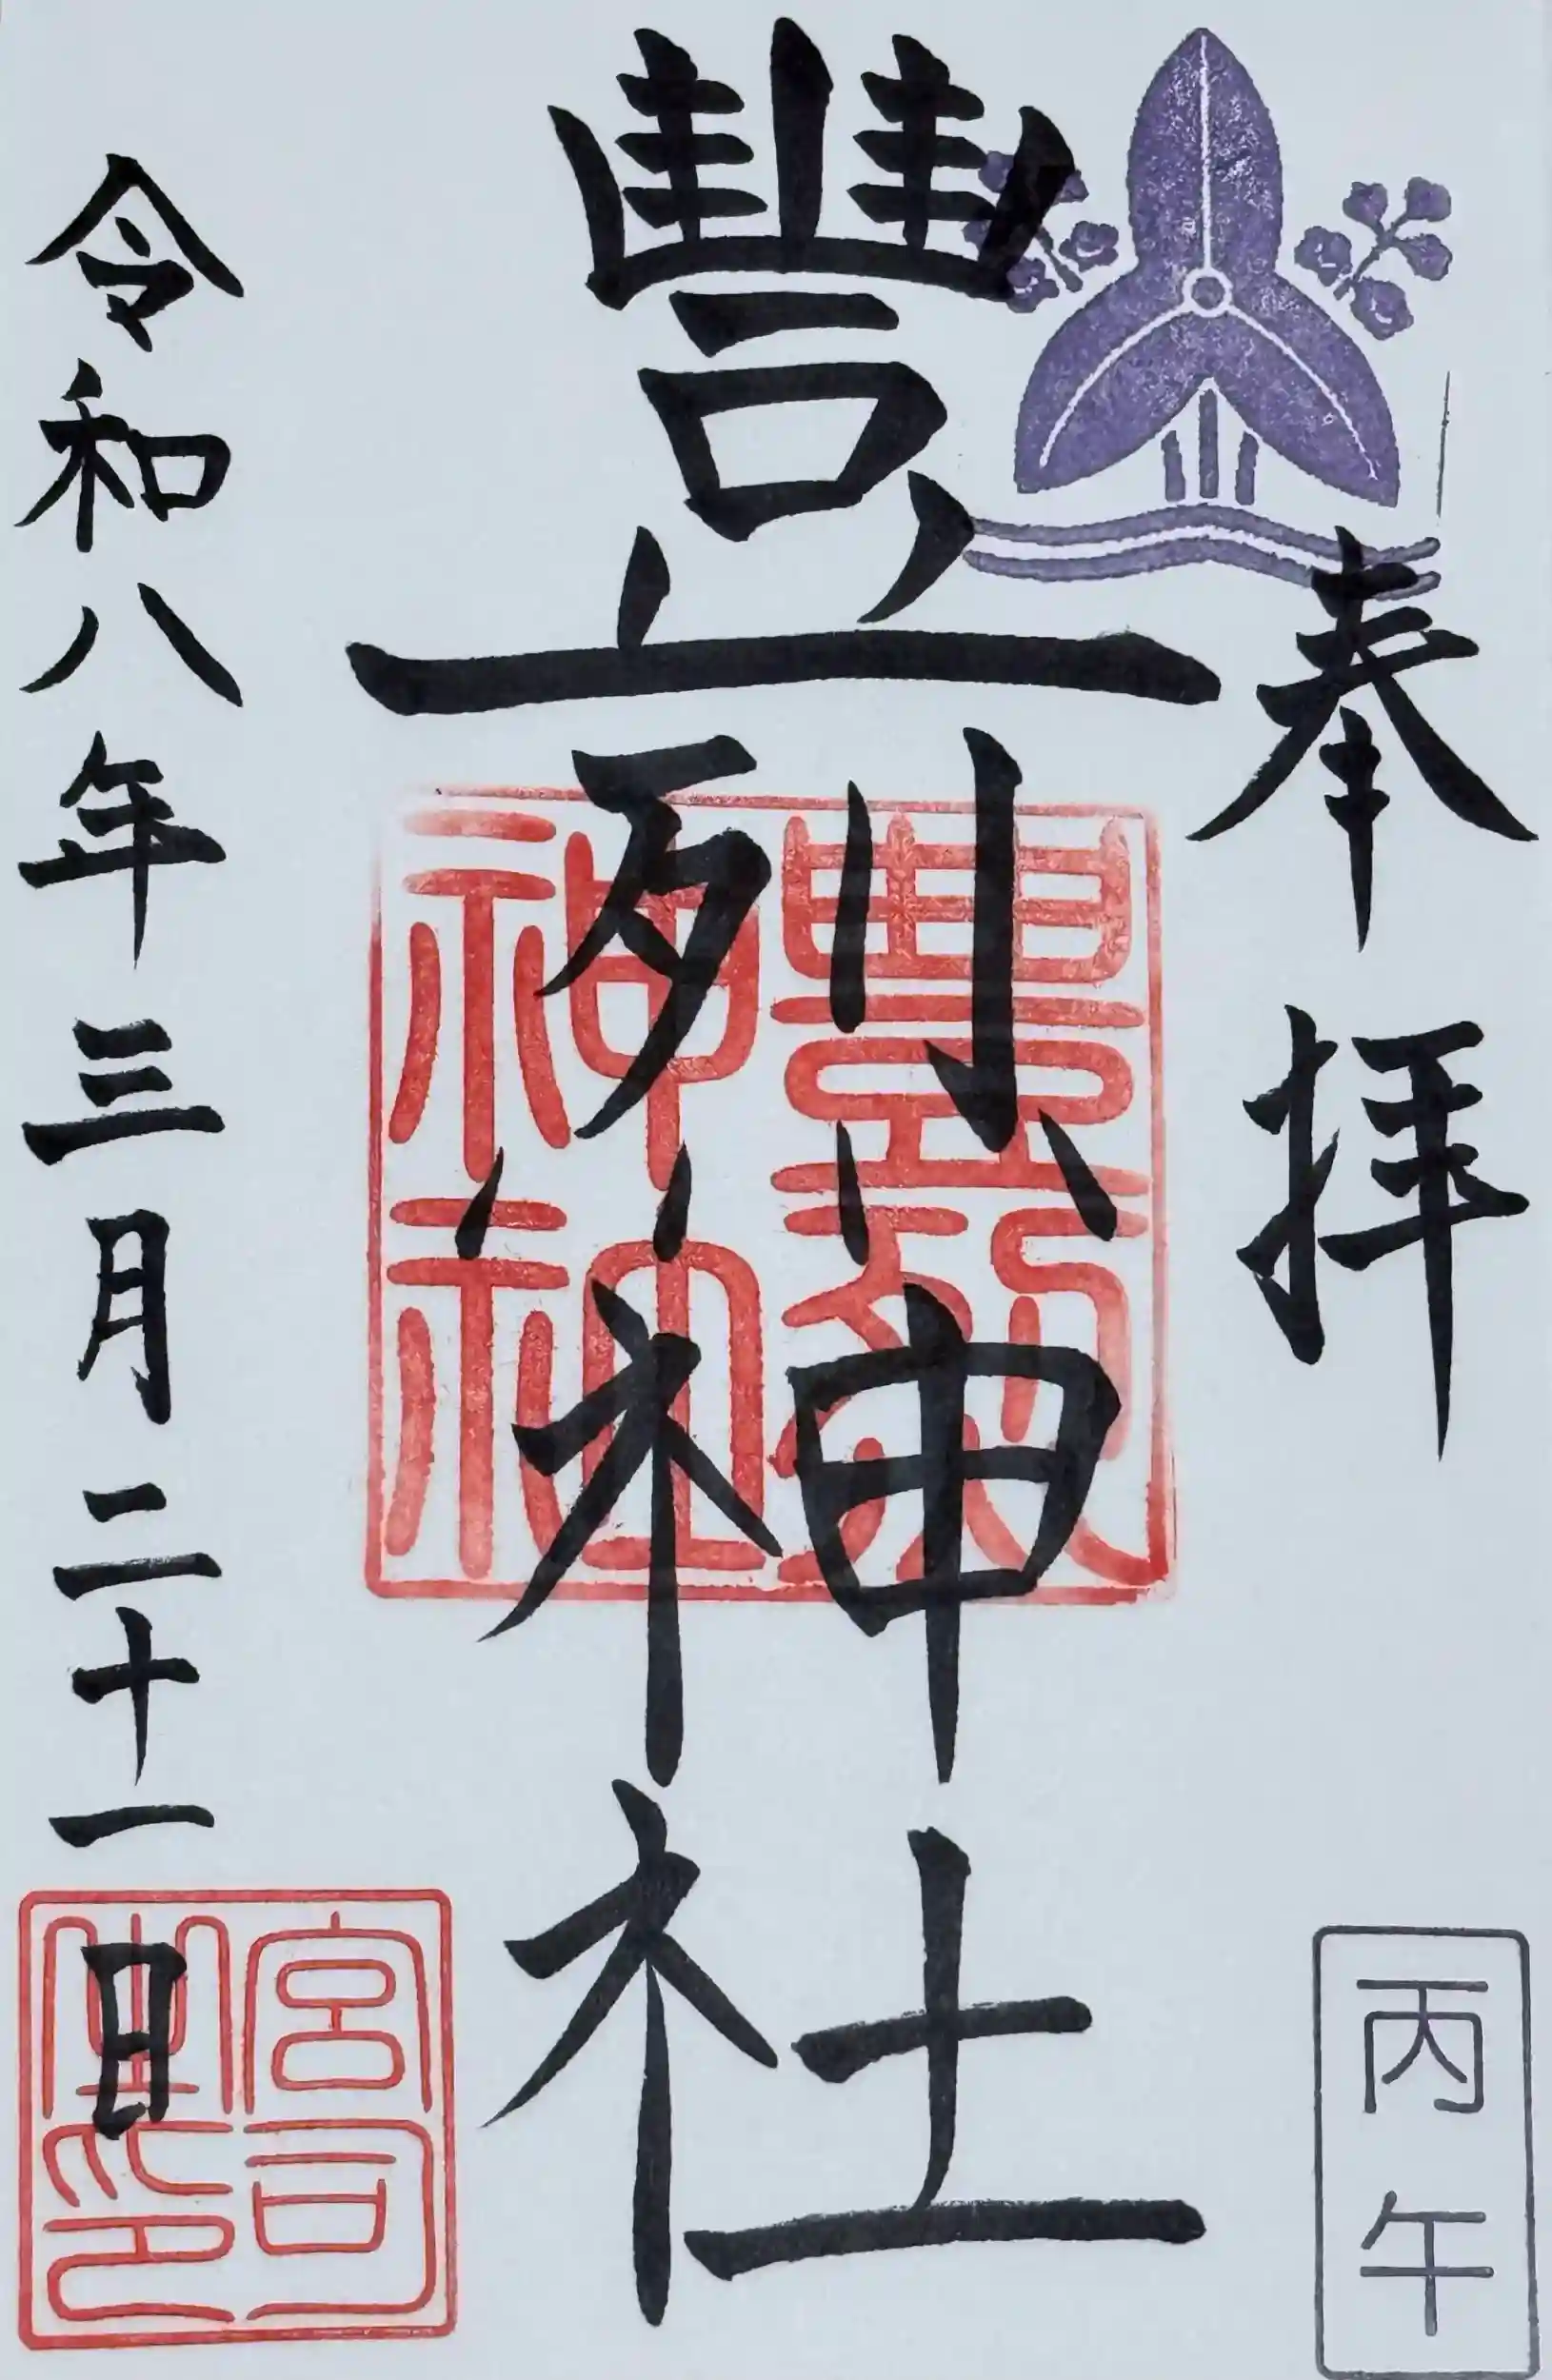 奉拝
豐烈神社
令和八年三月二十一日
豐烈神社
宮司之印
丙午